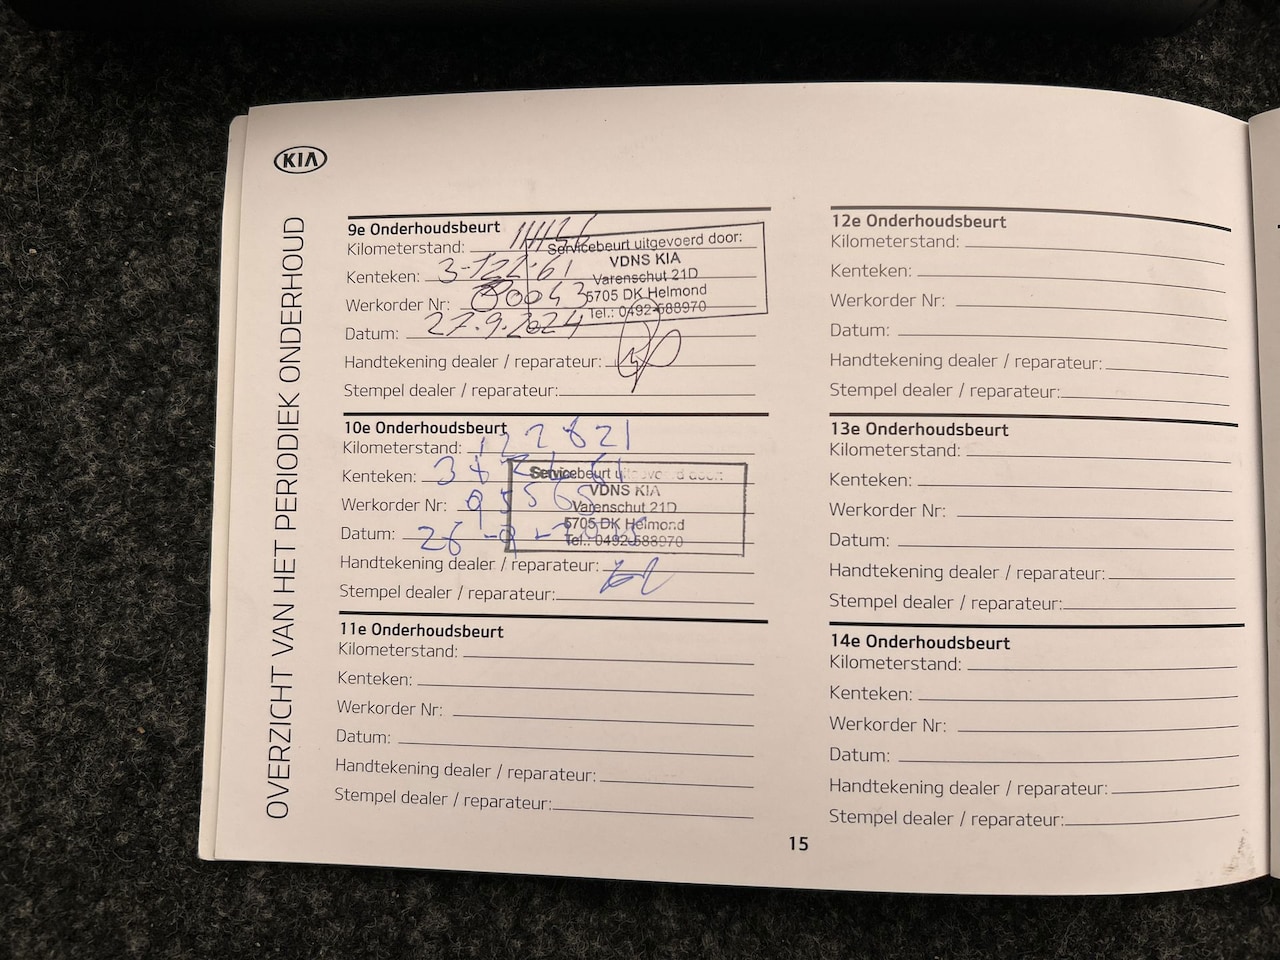 KIA
OVERZICHT VAN HET PERIODIEK ONDERHOUD
9e Onderhoudsbeurt
Kilometerstand:
Kenteken:
Werkorder Nr: 80043
Datum: 27.9.2024
Handtekening dealer / reparateur:
Stempel dealer / reparateur:
Servicebeurt uitgevoerd door:
VDNS KIA
Varenschut 21D
5705 DK Helmond
Tel.: 0492-588970
10e Onderhoudsbeurt
Kilometerstand: 122821
Kenteken:
Werkorder Nr: 95565
Datum: 26-9-
Handtekening dealer / reparateur:
Stempel dealer / reparateur:
Servicebeurt uitgevoerd door:
VDNS KIA
Varenschut 21D
5705 DK Helmond
Tel.: 0492-588970
11e Onderhoudsbeurt
Kilometerstand:
Kenteken:
Werkorder Nr:
Datum:
Handtekening dealer / reparateur:
Stempel dealer / reparateur:
12e Onderhoudsbeurt
Kilometerstand:
Kenteken:
Werkorder Nr:
Datum:
Handtekening dealer / reparateur:
Stempel dealer / reparateur:
13e Onderhoudsbeurt
Kilometerstand:
Kenteken:
Werkorder Nr:
Datum:
Handtekening dealer / reparateur:
Stempel dealer / reparateur:
14e Onderhoudsbeurt
Kilometerstand:
Kenteken:
Werkorder Nr:
Datum:
Handtekening dealer / reparateur:
Stempel dealer / reparateur:
15